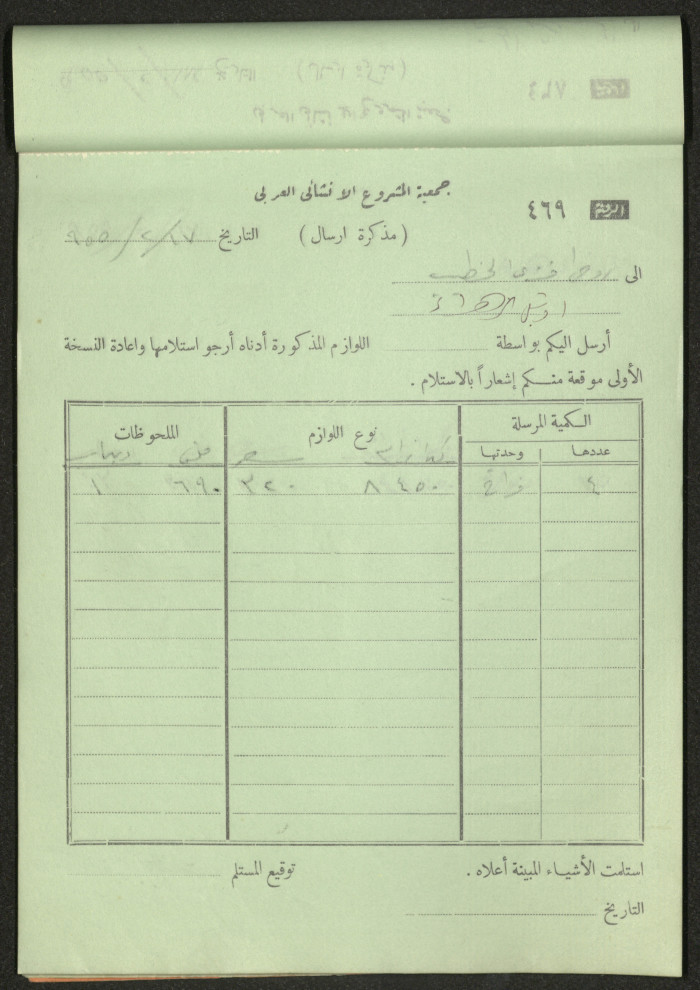 جمعية المشروع الانشائي العربي
الرقم ٤٦٩
(مذكرة ارسال) التاريخ ١٧/٢/٩٥٥
الى
أرسل اليكم بواسطة اللوازم المذكورة أدناه أرجو استلامها واعادة النسخة
الأولى موقعة منكم إشعاراً بالاستلام .
الكمية المرسلة نوع اللوازم الملحوظات
عددها وحدتها
سعر دينار
٤ فراخ ٨٤٥٠ ٣٢٠ ٦٩٠ ١
استلمت الأشياء المبينة أعلاه . توقيع المستلم
التاريخ